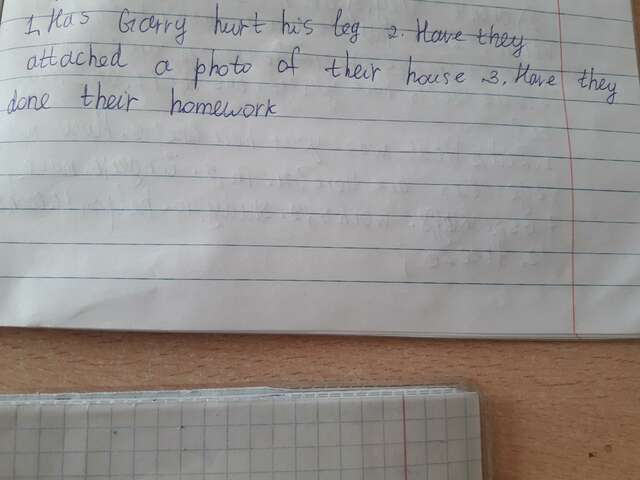 1. Has Garry hurt his leg 2. Have they
attached a photo of their house 3. Have they
done their homework